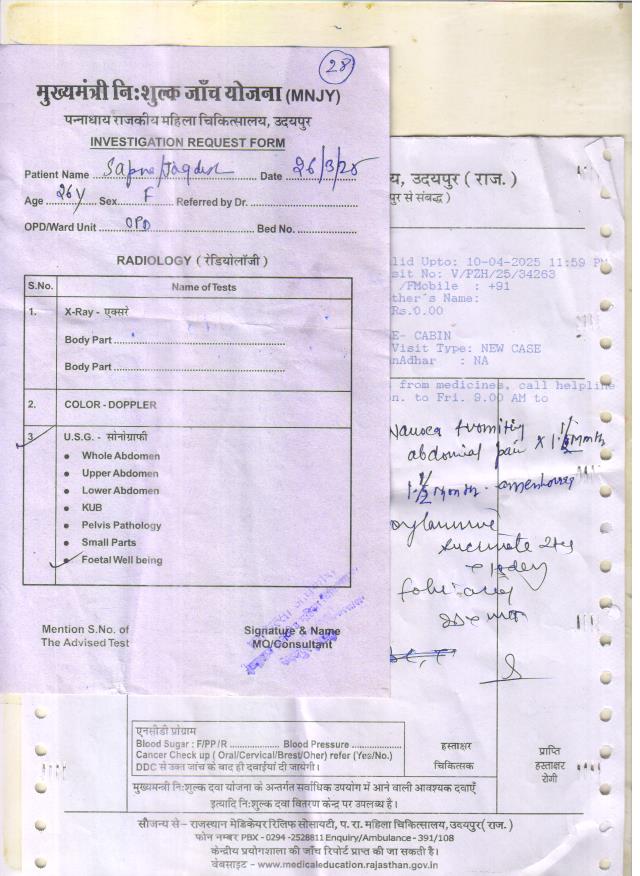 28
मुख्यमंत्री नि:शुल्क जाँच योजना (MNJY)
पन्नाधाय राजकीय महिला चिकित्सालय, उदयपुर
INVESTIGATION REQUEST FORM
Patient Name Sapna/Jagdish Date 26/3/25
Age 26y Sex F Referred by Dr.
OPD/Ward Unit OPD Bed No.
RADIOLOGY ( रेडियोलॉजी )
S.No. Name of Tests
1. X-Ray - एक्सरे
Body Part
Body Part
2. COLOR - DOPPLER
3. U.S.G. - सोनोग्राफी
Whole Abdomen
Upper Abdomen
Lower Abdomen
KUB
Pelvis Pathology
Small Parts
Foetal Well being
Mention S.No. of
The Advised Test
Signature & Name
MO/Consultant
य, उदयपुर ( राज. )
पुर से संबद्ध )
lid Upto: 10-04-2025 11:59 P
sit No: V/PZH/25/34263
/FMobile : +91
ther's Name:
Rs.0.00
E- CABIN
Visit Type: NEW CASE
nAdhar : NA
from medicines, call helpline
n. to Fri. 9.00 AM to
Nausea + vomiting
abdominal pain X 1 1/2 Month
1 1/2 Month amenorrhea
succinate
एनसीडी प्रोग्राम
Blood Sugar : F/PP/R Blood Pressure
Cancer Check up ( Oral/Cervical/Brest/Oher) refer (Yes/No.)
DDC से उक्त जांच के बाद ही दवाईयां दी जायेगी।
हस्ताक्षर
चिकित्सक
प्राप्ति
हस्ताक्षर
रोगी
मुख्यमन्त्री नि:शुल्क दवा योजना के अन्तर्गत सर्वाधिक उपयोग में आने वाली आवश्यक दवाऐं
इत्यादि नि:शुल्क दवा वितरण केन्द्र पर उपलब्ध है।
सौजन्य से – राजस्थान मेडिकेयर रिलिफ सोसायटी, प. रा. महिला चिकित्सालय, उदयपुर( राज. )
फोन नम्बर PBX - 0294 -2528811 Enquiry/Ambulance - 391/108
केन्द्रीय प्रयोगशाला की जाँच रिपोर्ट प्राप्त की जा सकती है।
वेबसाइट – www.medicaleducation.rajasthan.gov.in